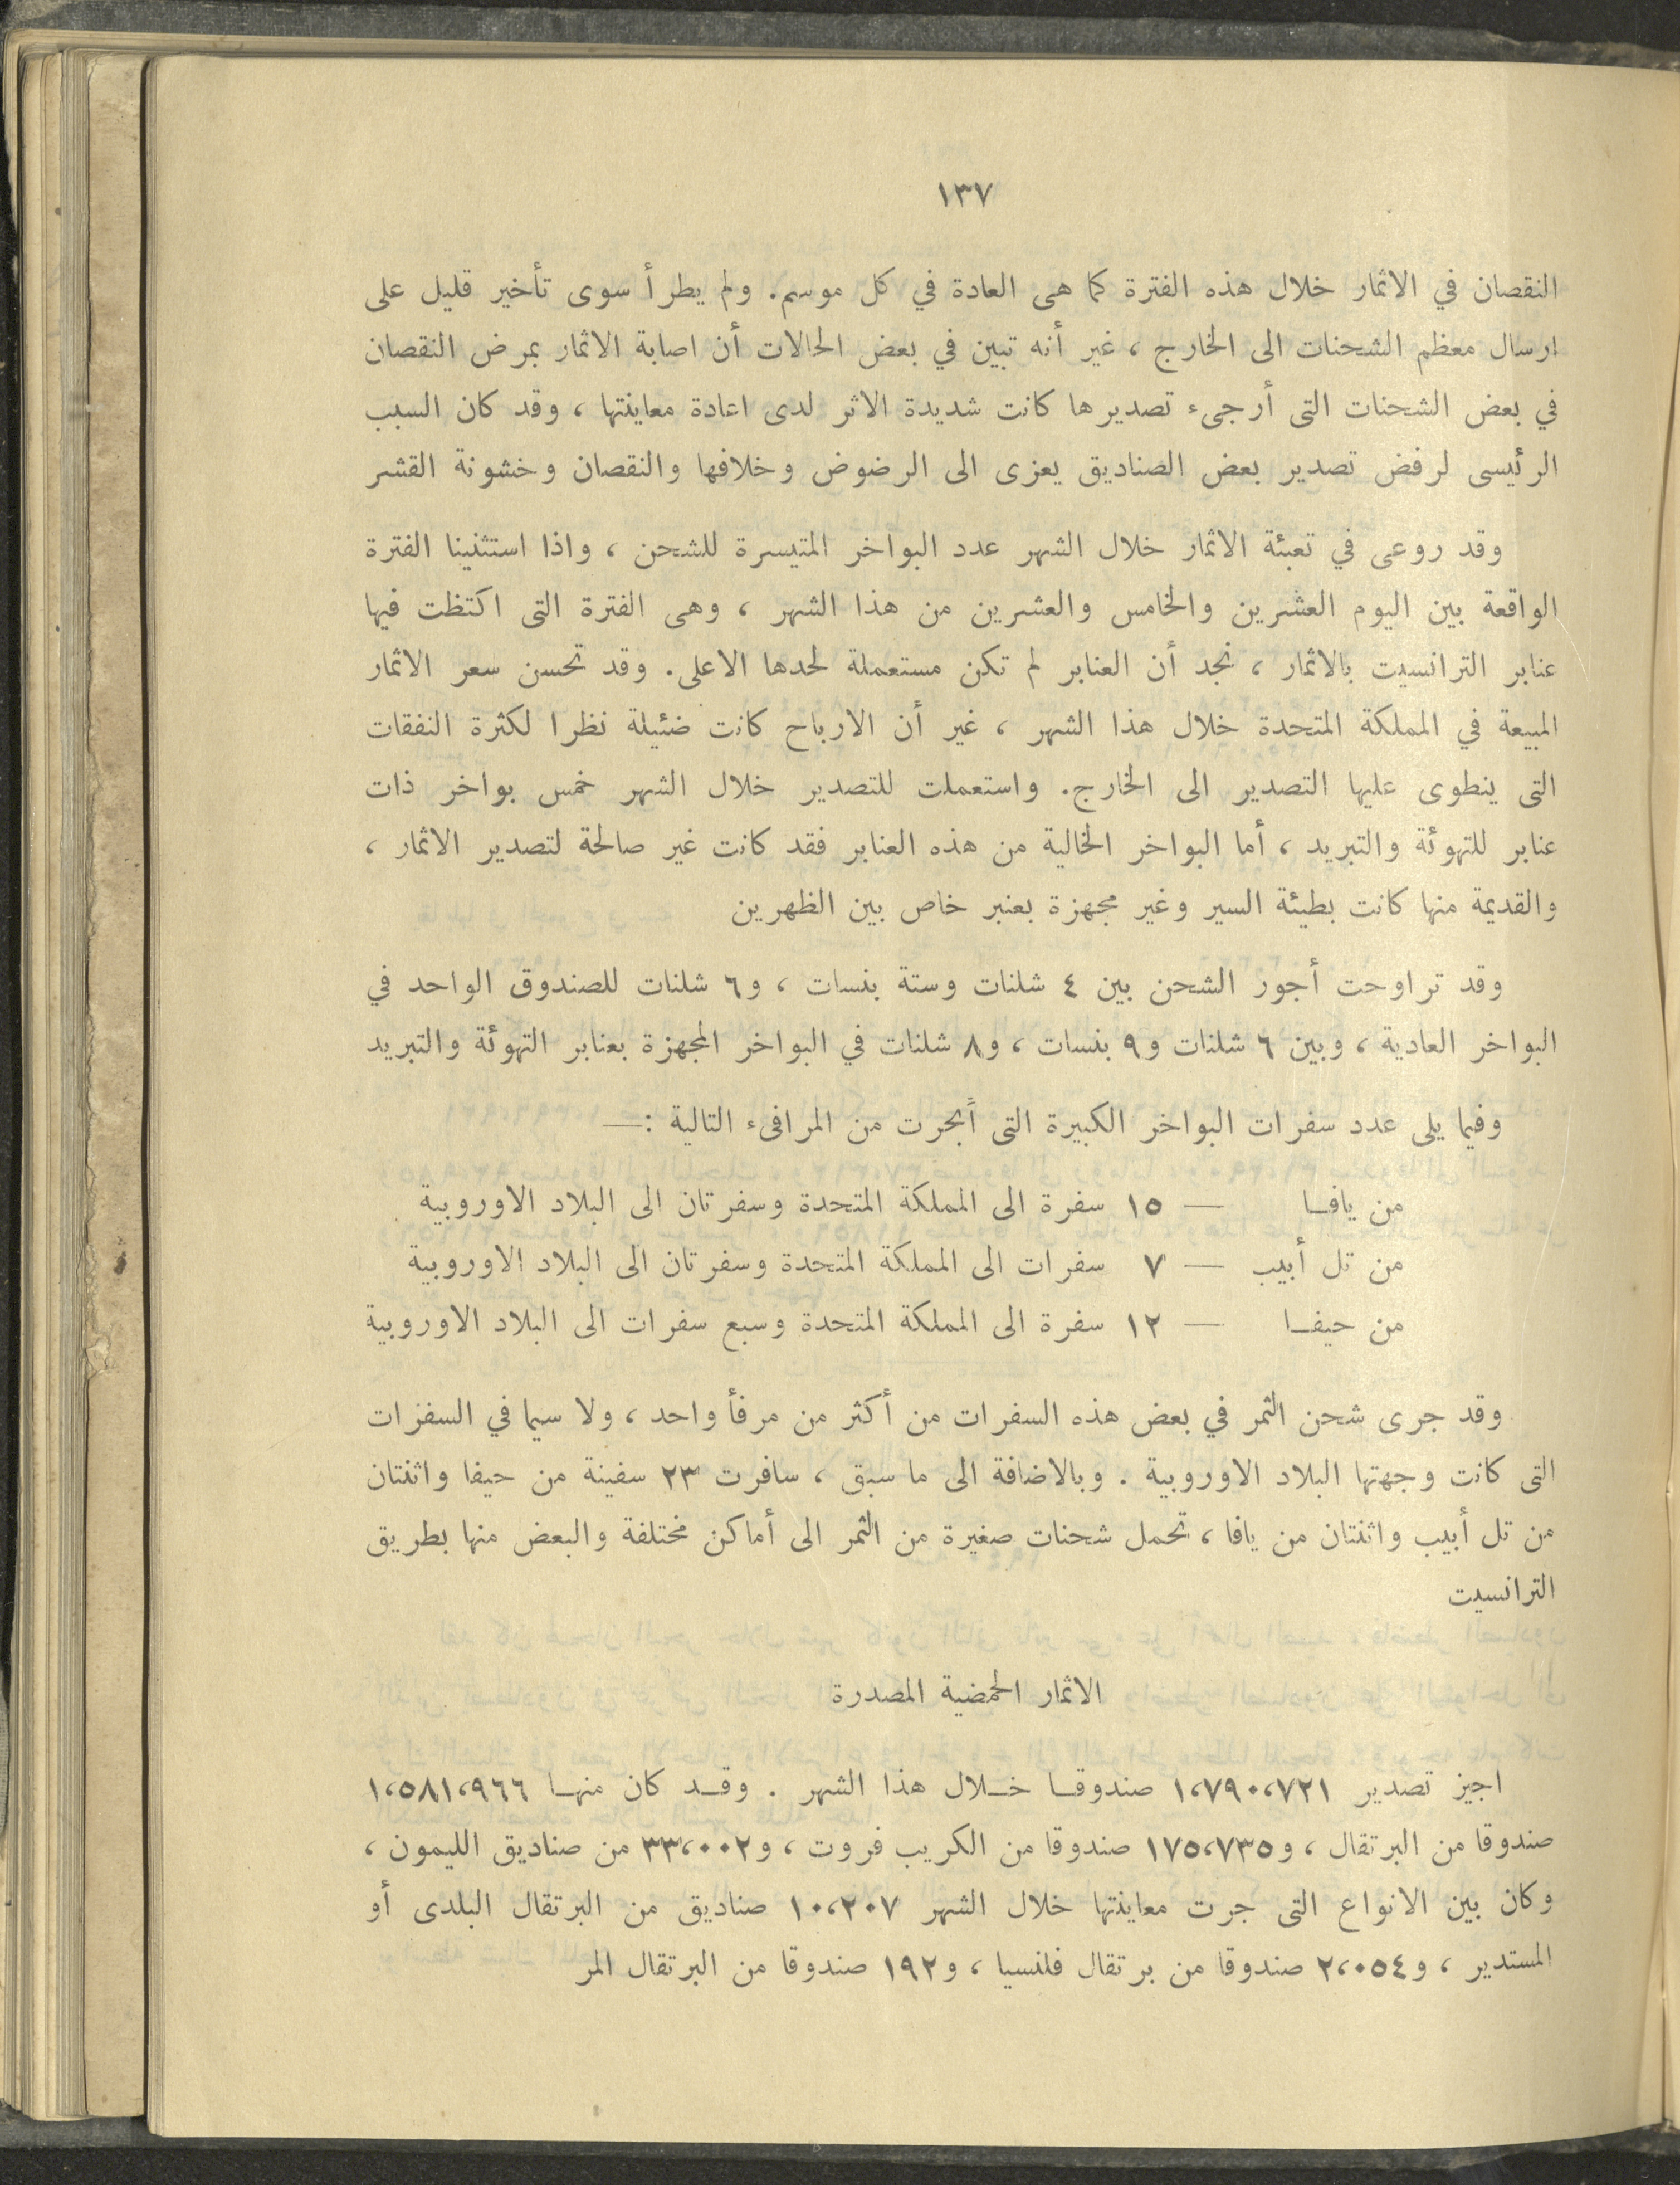 ١٣٧
النقصان في الاثمار خلال هذه الفترة كما هى العادة في كل موسم. ولم يطرأ سوى تأخير قليل على
ارسال معظم الشحنات الى الخارج ، غير أنه تبين في بعض الحالات أن اصابة الاثمار بمرض النقصان
في بعض الشحنات التى أرجىء تصديرها كانت شديدة الاثر لدى اعادة معاينتها ، وقد كان السبب
الرئيسى لرفض تصدير بعض الصناديق يعزى الى الرضوض وخلافها والنقصان وخشونة القشر
وقد روعى في تعبئة الاثمار خلال الشهر عدد البواخر المتيسرة للشحن ، واذا استثنينا الفترة
الواقعة بين اليوم العشرين والخامس والعشرين من هذا الشهر ، وهى الفترة التى اكتظت فيها
عنابر الترانسيت بالاثمار ، نجد أن العنابر لم تكن مستعملة لحدها الاعلى. وقد تحسن سعر الاثمار
المبيعة في المملكة المتحدة خلال هذا الشهر ، غير أن الارباح كانت ضئيلة نظرا لكثرة النفقات
التى ينطوى عليها التصدير الى الخارج. واستعملت للتصدير خلال الشهر خمس بواخر ذات
عنابر للتهوئة والتبريد ، أما البواخر الخالية من هذه العنابر فقد كانت غير صالحة لتصدير الاثمار ،
والقديمة منها كانت بطيئة السير وغير مجهزة بعنبر خاص بين الظهرين
وقد تراوحت أجور الشحن بين ٤ شلنات وستة بنسات ، و٦ شلنات للصندوق الواحد في
البواخر العادية ، وبين ٦ شلنات و٩ بنسات ، و٨ شلنات في البواخر المجهزة بعنابر التهوئة والتبريد
وفيما يلى عدد سفرات البواخر الكبيرة التى أبحرت من المرافىء التالية :—
من يافـا — ١٥ سفرة الى المملكة المتحدة وسفرتان الى البلاد الاوروبية
من تل أبيب — ٧ سفرات الى المملكة المتحدة وسفرتان الى البلاد الاوروبية
من حيفـا — ١٢ سفرة الى المملكة المتحدة وسبع سفرات الى البلاد الاوروبية
وقد جرى شحن الثمر في بعض هذه السفرات من أكثر من مرفأ واحد ، ولا سيما في السفرات
التى كانت وجهتها البلاد الاوروبية . وبالاضافة الى ما سبق ، سافرت ٢٣ سفينة من حيفا واثنتان
من تل أبيب واثنتان من يافا ، تحمل شحنات صغيرة من الثمر الى أماكن مختلفة والبعض منها بطريق
الترانسيت
الاثمار الحمضية المصدرة
اجيز تصدير ١،٧٩٠،٧٢١ صندوقـا خـلال هذا الشهر . وقـد كان منهـا ١،٥٨١،٩٦٦
صندوقا من البرتقال ، و١٧٥،٧٣٥ صندوقا من الكريب فروت ، و٣٣،٠٠٢ من صناديق الليمون ،
وكان بين الانواع التى جرت معاينتها خلال الشهر ١٠،٢٠٧ صناديق من البرتقال البلدى أو
المستدير ، و٢،٠٥٤ صندوقا من برتقال فلنسيا ، و١٩٢ صندوقا من البرتقال المر